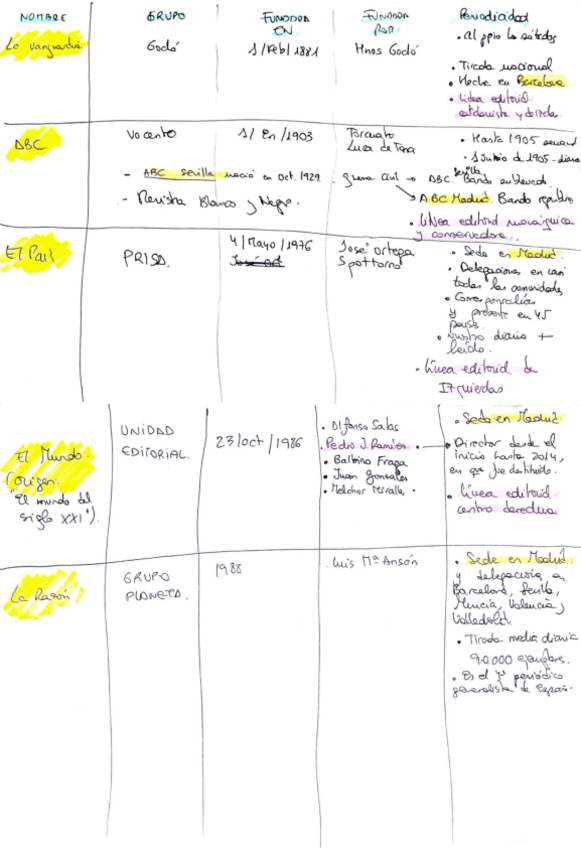 NOMBRE GRUPO FUNDADA EN FUNDADA POR Periodicidad
La Vanguardia Godó 1/Feb/1881 Hnos Godó
• Al ppio los sábados
• Tirada nacional
• Hecha en Barcelona
• Línea editorial
catalanista y de dcda.
ABC Vocento 1/En/1903 Torcuato
Luca de Tena
• Hasta 1905 semanal
• 1 Junio d 1905 - diario
- ABC Sevilla nació en Oct. 1929.
- Revista Blanco y Negro.
guerra civil → ABC Sevilla. Bando sublevado
→ ABC Madrid. Bando republic
• Línea editorial monárquica
y conservadora.
El País PRISA. 4/Mayo/1976 José Ortega
Spottorno
• Sede en Madrid
• Delegaciones en casi
todas las comunidades
• Corresponsalías
y presente en 45
países.
• Nuestro diario +
leído.
• Línea editorial de
Izquierdas
El Mundo
(Origen:
"El mundo del
siglo XXI").
UNIDAD
EDITORIAL.
23/oct/1986
• Alfonso Salas
Pedro J. Ramírez
• Balbino Fraga
• Juan González
• Melchor Miralles.
• Sede en Madrid
→ Director desde el
inicio hasta 2014,
en que fue destituido.
• Línea editorial
centro derecha
La Razón GRUPO
PLANETA.
1988
Luis Mª Ansón
• Sede en Madrid
y delegación en
Barcelona, Sevilla,
Murcia, Valencia y
Valladolid.
• Tirada media diaria
90.000 ejemplares.
• Es el periódico
generalista de España.